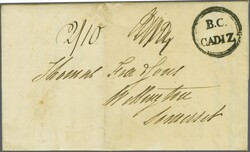 2/10
B.C.
CADIZ
Thomas Fox & Sons
Wellington
Somerset